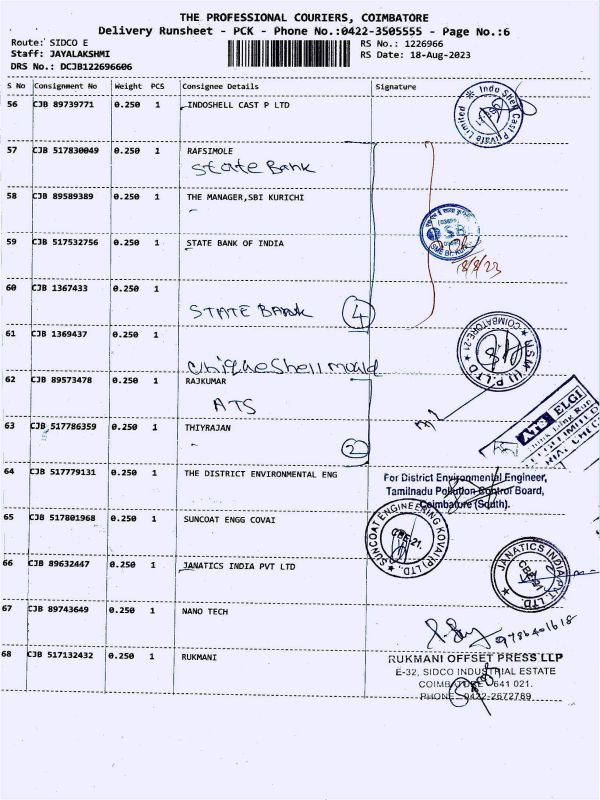 THE PROFESSIONAL COURIERS, COIMBATORE
Delivery Runsheet - PCK - Phone No.:0422-3505555 - Page No.:6
Route: SIDCO E
RS No.: 1226966
Staff: JAYALAKSHMI
RS Date: 18-Aug-2023
DRS No.: DCJB122696606
S No Consignment No Weight PCS Consignee Details Signature
56 CJB 89739771 0.250 1 INDOSHELL CAST P LTD
Indo Shell Cast Private Limited
57 CJB 517830049 0.250 1 RAFSIMOLE
State Bank
58 CJB 89589389 0.250 1 THE MANAGER,SBI KURICHI
59 CJB 517532756 0.250 1 STATE BANK OF INDIA
SBI
18/8/23
60 CJB 1367433 0.250 1
STATE BANK 4
61 CJB 1369437 0.250 1
COIMBATORE-21
Shell mould
62 CJB 89573478 0.250 1 RAJKUMAR
ATS
ATS ELGI
63 CJB 517786359 0.250 1 THIYRAJAN
2
64 CJB 517779131 0.250 1 THE DISTRICT ENVIRONMENTAL ENG
For District Environmental Engineer,
Tamilnadu Pollution Control Board,
Coimbatore (South).
65 CJB 517801968 0.250 1 SUNCOAT ENGG COVAI
SUNCOAT ENGINEERING KOVAI (P) LTD.
CBE-21.
66 CJB 89632447 0.250 1 JANATICS INDIA PVT LTD
JANATICS INDIA PVT. LTD.
CBE-21
67 CJB 89743649 0.250 1 NANO TECH
9786401618
68 CJB 517132432 0.250 1 RUKMANI
RUKMANI OFFSET PRESS LLP
E-32, SIDCO INDUSTRIAL ESTATE
COIMBATORE 641 021.
PHONE 0422-2672789